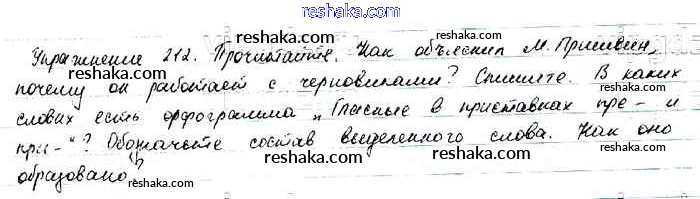 reshaka.com
Упражнение 212. Прочитайте. Как объяснил М. Пришвин,
reshaka.com reshaka.com
почему он работает с черновиками? Спишите. В каких
reshaka.com reshaka.com
словах есть орфограмма „Гласные в приставках пре- и
при-"? Обозначьте состав выделенного слова. Как оно
reshaka.com reshaka.com
образовано?
reshaka.com
reshaka.com